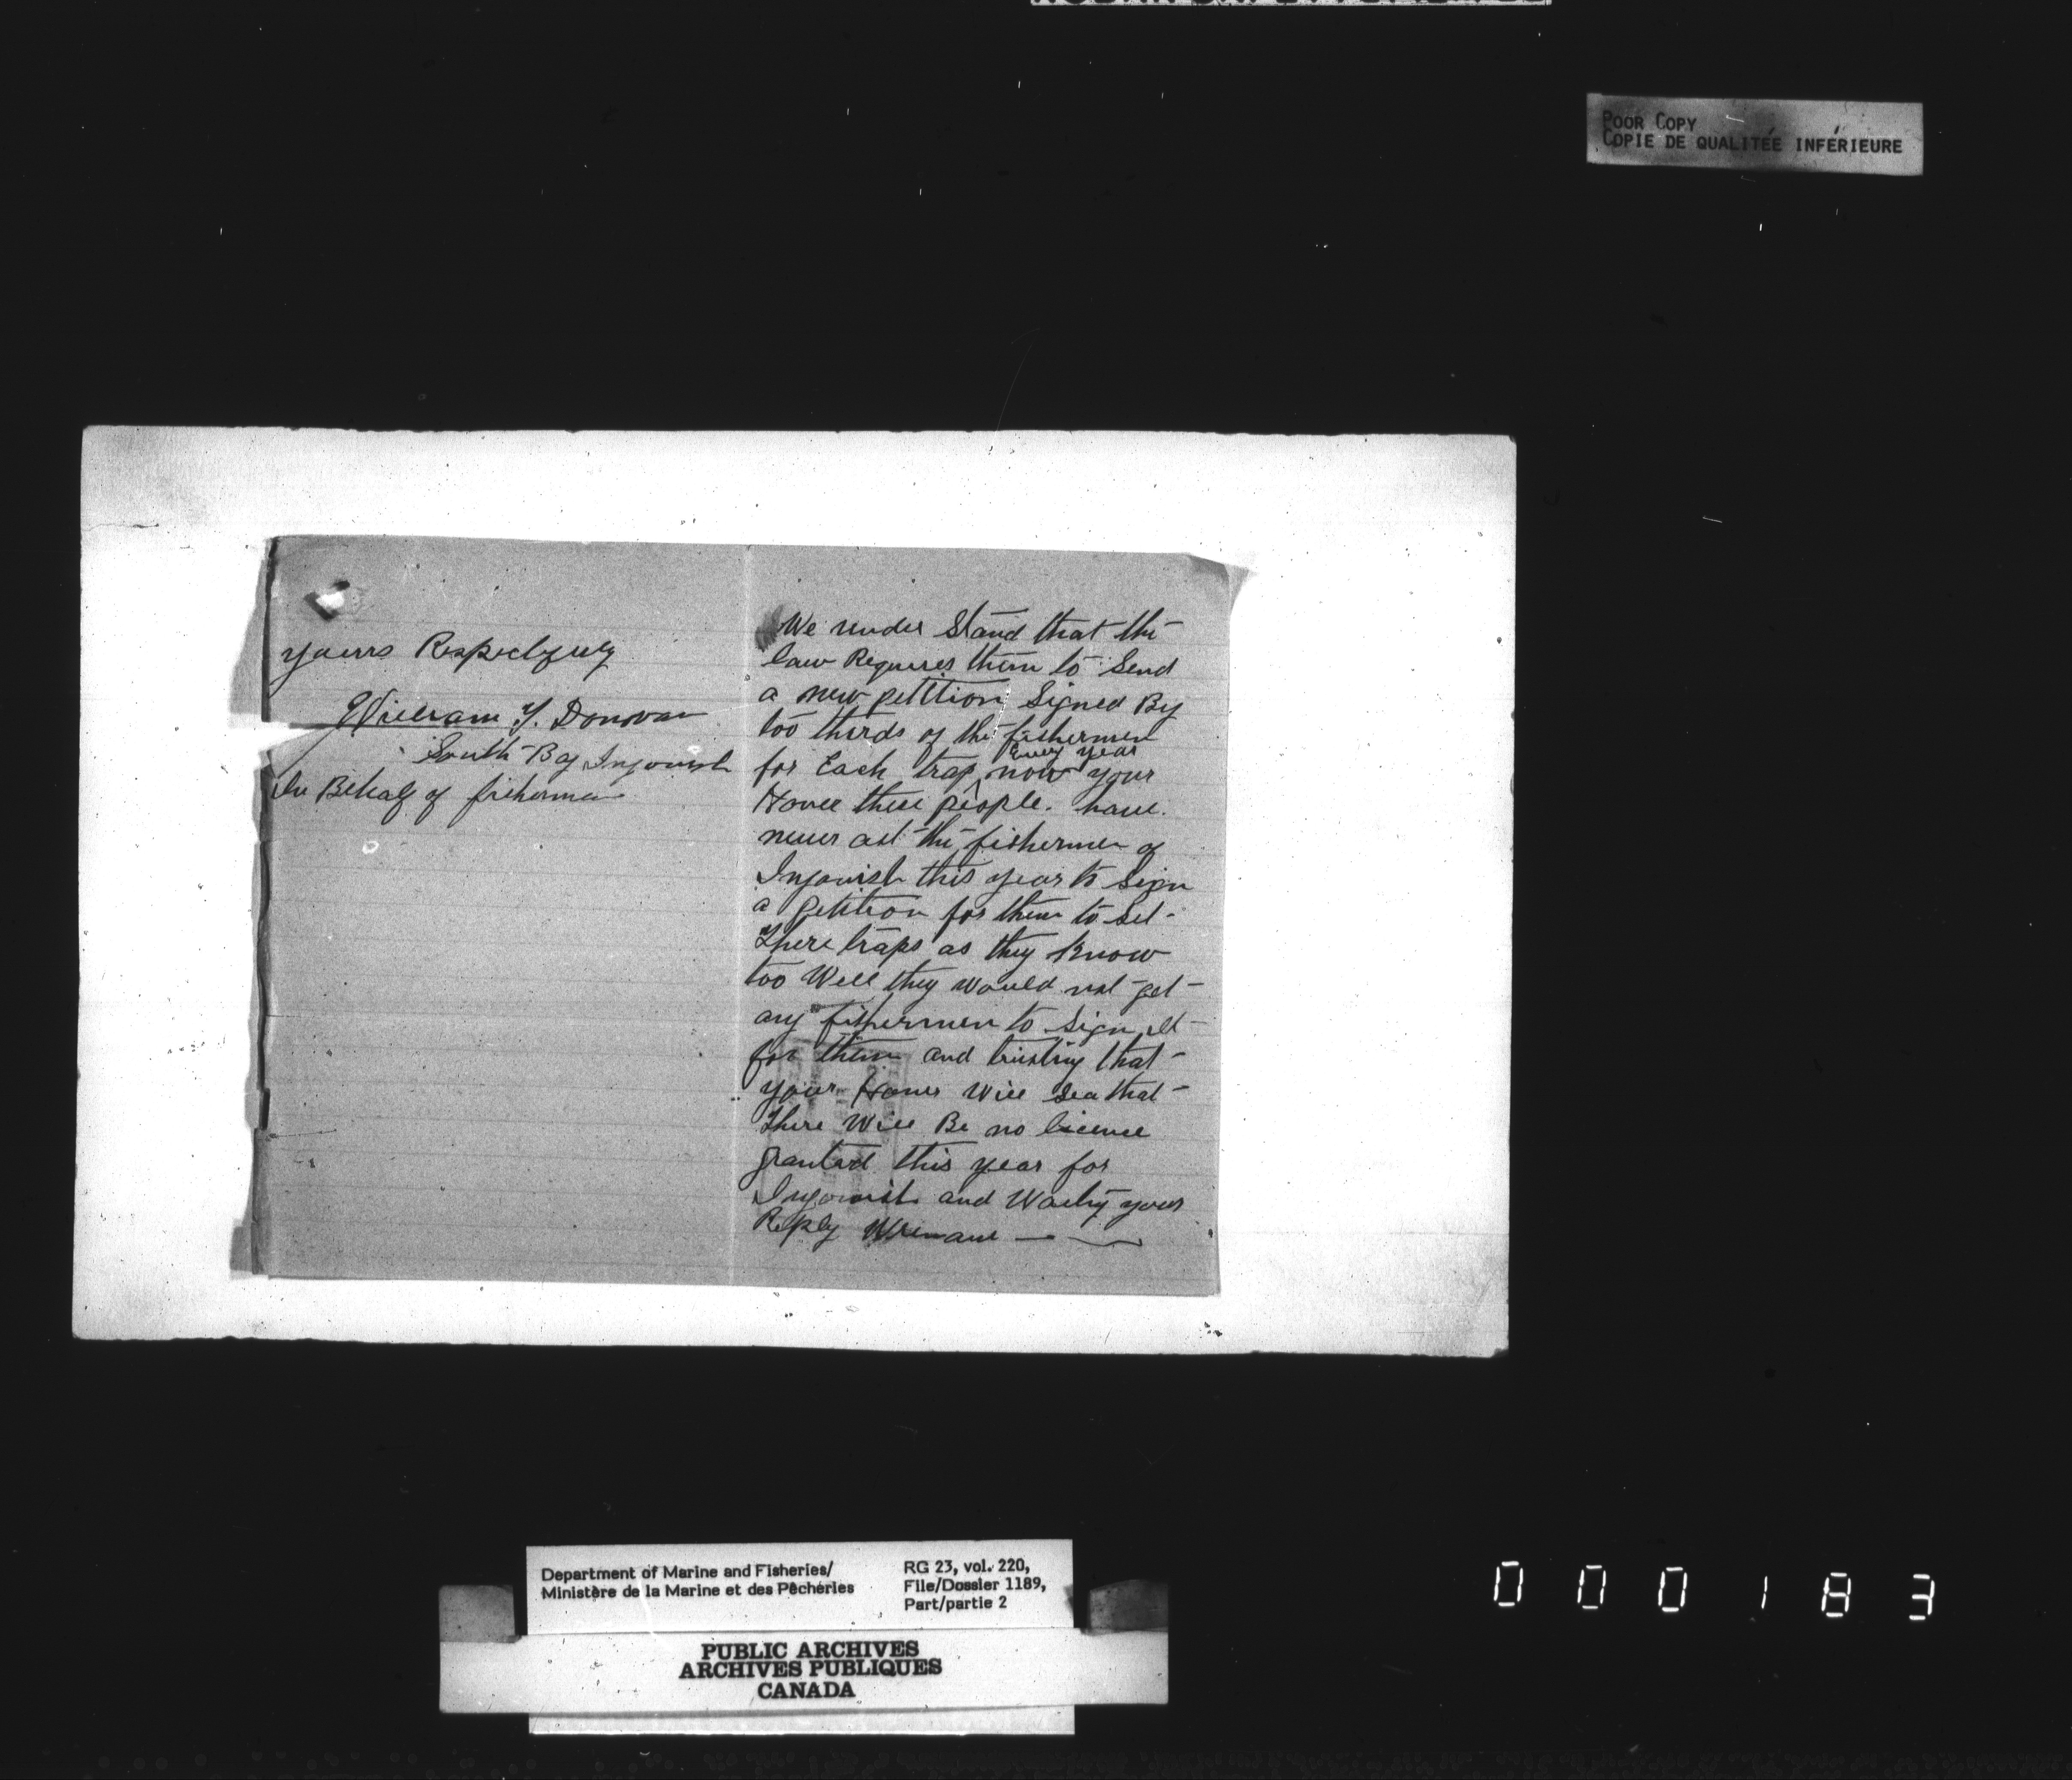 POOR COPY
COPIE DE QUALITÉE INFÉRIEURE
We under Stand that the
law Requires them to Send
a new petition Signed By
too thirds of the fishermen
for Each trap Every year now your
Honer these people. have.
never ast the fishermen of
Ingonish this year to Sign
a petition for them to Set
There traps as they Know
too Well they would not get
any fishermen to Sign it
for them and trusting that
your Honer Will Sea that
There Will Be no licence
granted this year for
Ingonish and Waiting your
Reply
yours Respectfully
William Y. Donovan
South Bay Ingonish
In Behalf of fishermen
Department of Marine and Fisheries/
Ministère de la Marine et des Pêcheries
RG 23, vol. 220,
File/Dossier 1189,
Part/partie 2
PUBLIC ARCHIVES
ARCHIVES PUBLIQUES
CANADA
000183